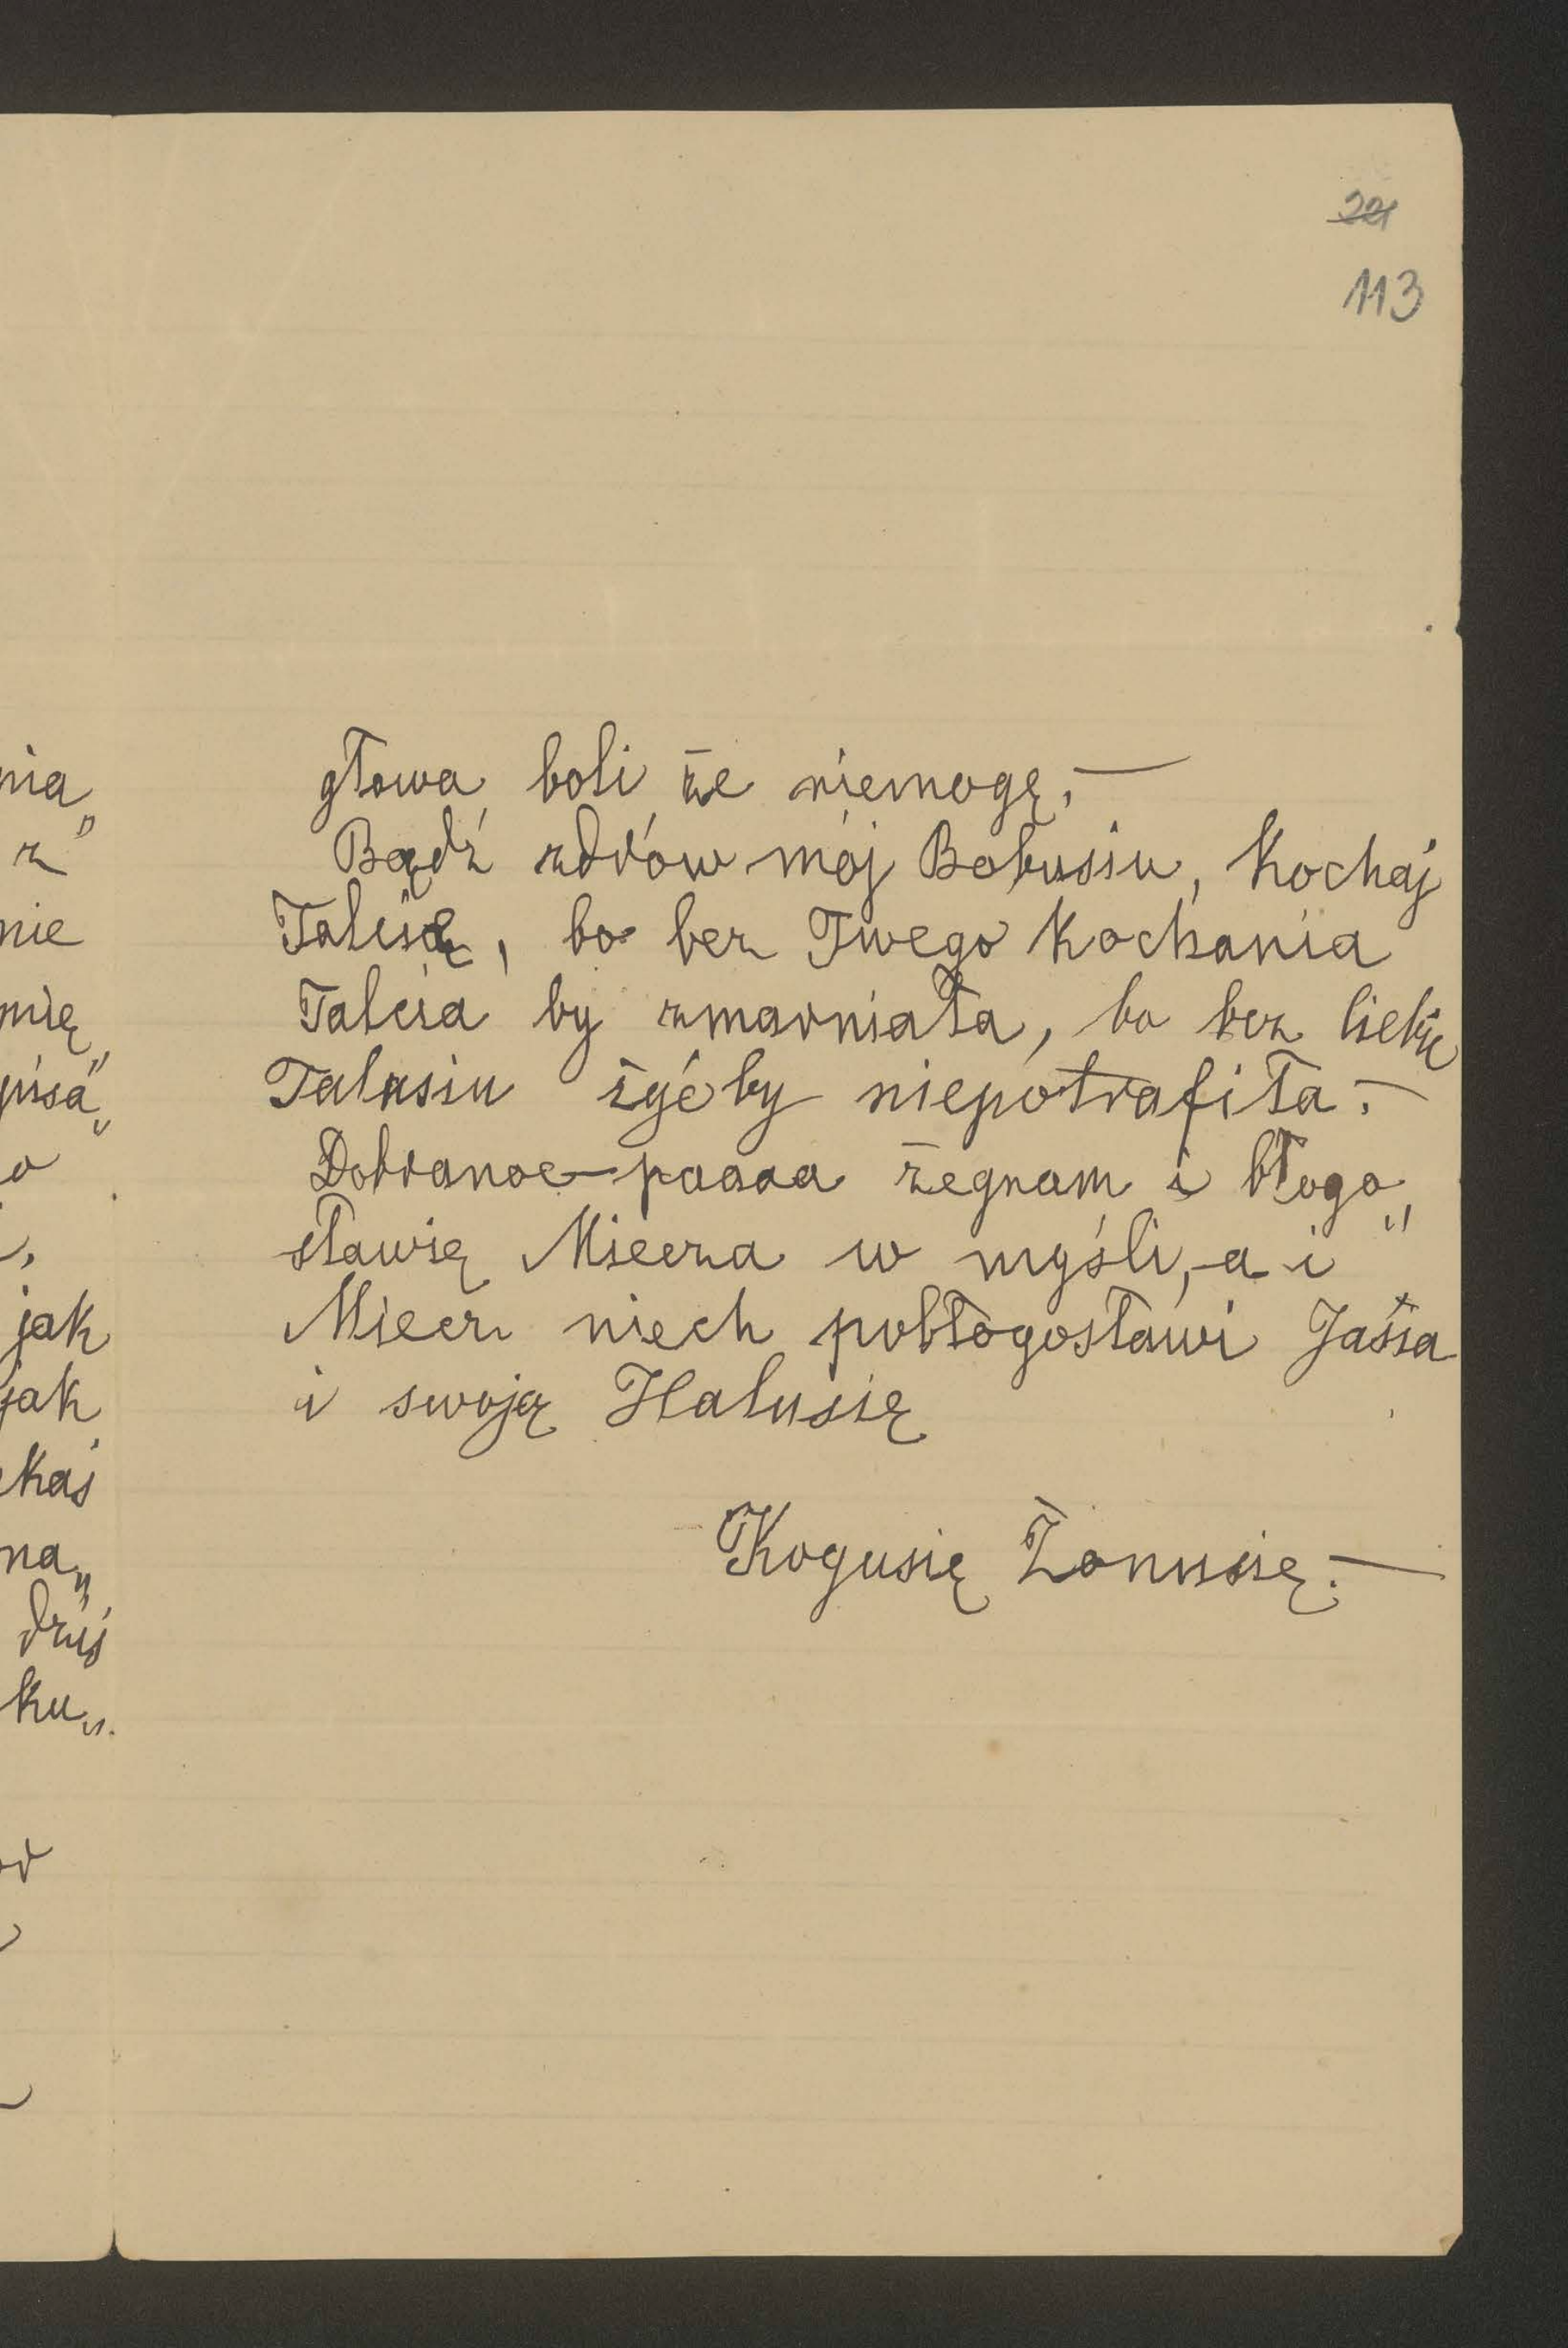 221
113
głowa boli że niemogę. —
Bądź zdrów mój Bobusiu, Kochaj
Talcię, bo bez Twego Kochania
Talcia by zmarniała, bo bez Ciebie
Talusiu żyćby niepotrafiła. —
Dobranoc — paaaa żegnam i błogo„
sławię Miecza w myśli, - a i
Miecz niech pobłogosławi Jasia
i swoją Halusię
Kogusię Żonusię. —
nią„
z
nie
mię
pisa„
o
jak
jak
kaj
na„
dziś
ku„